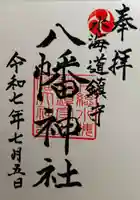 奉拝
水海道鎮守
八幡神社
令和七年七月五日